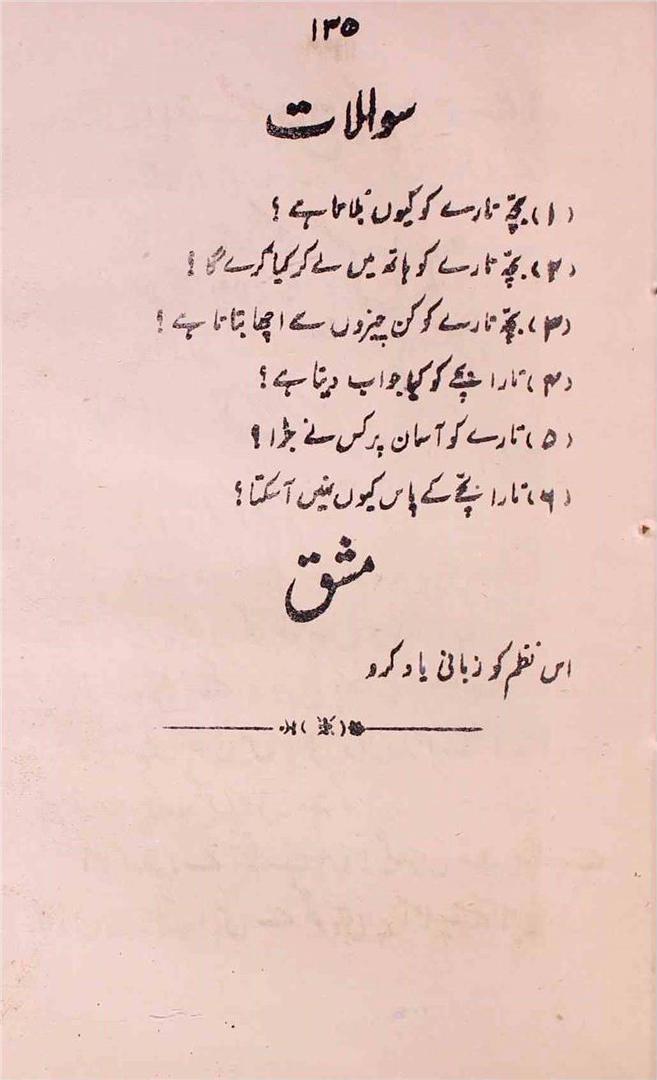 ۱۳۵
سوالات
(۱) بچّہ تارے کو کیوں بُلاتا ہے؟
(۲) بچّہ تارے کو ہاتھ میں لے کر کیا کرے گا؟
(۳) بچّہ تارے کو کن چیزوں سے اچھا بتاتا ہے؟
(۴) تارا بچّے کو کیا جواب دیتا ہے؟
(۵) تارے کو آسمان پر کس نے جڑا؟
(۶) تارا بچّے کے پاس کیوں نہیں آسکتا؟
مشق
اس نظم کو زبانی یاد کرو